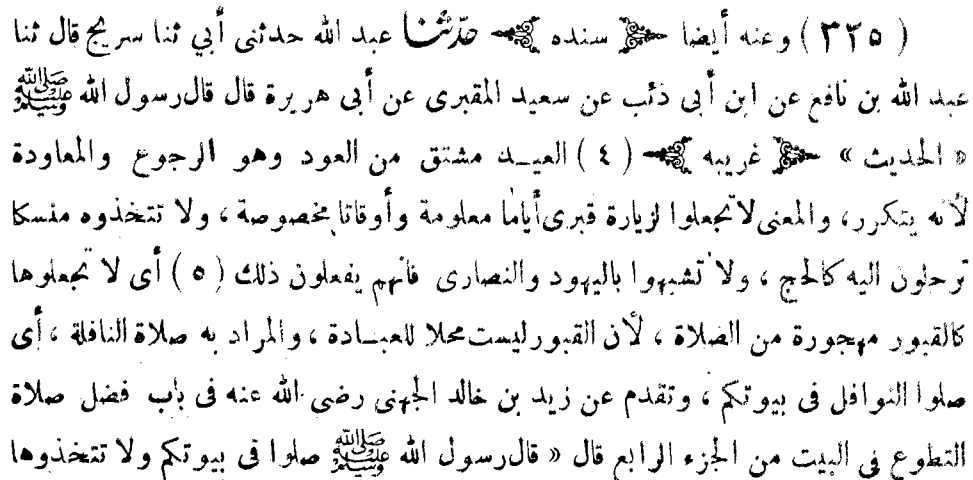 ( ٣٣٥ ) وعنه أيضا سنده حدثنا عبد الله حدثنى أبي ثنا سريج قال ثنا
عبد الله بن نافع عن ابن أبى ذئب عن سعيد المقبرى عن أبى هريرة قال قال رسول الله ﷺ
« الحديث » غريبه ( ٤ ) العيــد مشتق من العود وهو الرجوع والمعاودة
لأنه يتكرر، والمعنى لا تجعلوا لزيارة قبرى أياما معلومة وأوقاتا مخصوصة ، ولا تتخذوه منسكا
ترحلون اليه كالحج ، ولا تشبهوا باليهود والنصارى فانهم يفعلون ذلك ( ٥ ) أى لا تجعلوها
كالقبور مهجورة من الصلاة ، لأن القبور ليست محلا للعبــادة ، والمراد به صلاة النافلة ، أى
صلوا النوافل فى بيوتكم ، وتقدم عن زيد بن خالد الجهنى رضى الله عنه فى باب فضل صلاة
التطوع فى البيت من الجزء الرابع قال « قال رسول الله ﷺ صلوا فى بيوتكم ولا تتخذوها